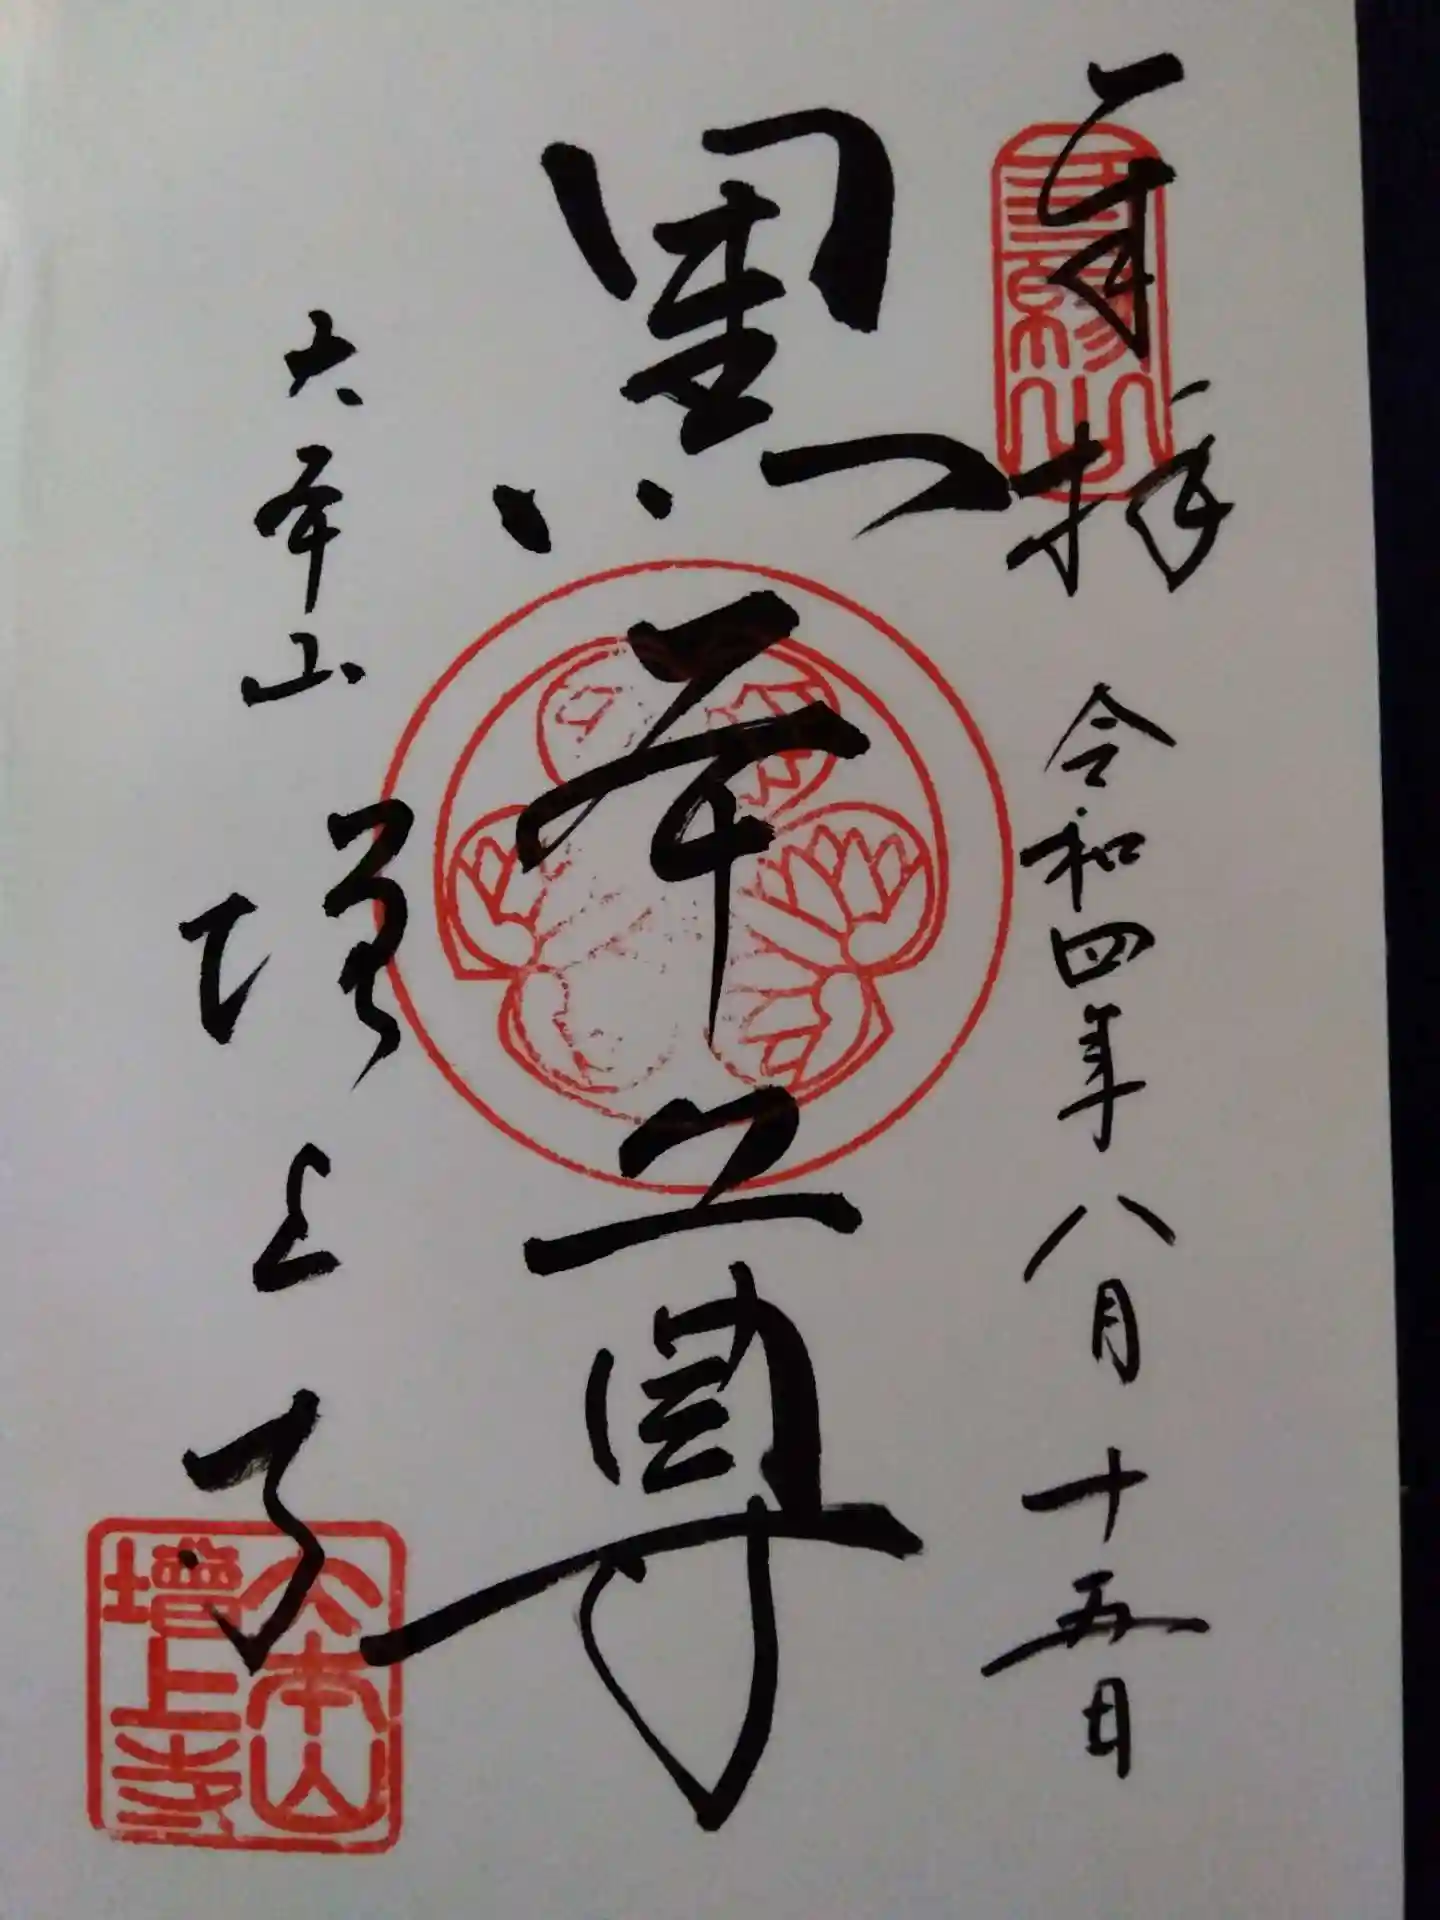 奉拝 令和四年八月十五日
三縁山
黒本尊
大本山 増上寺
大本山
増上寺